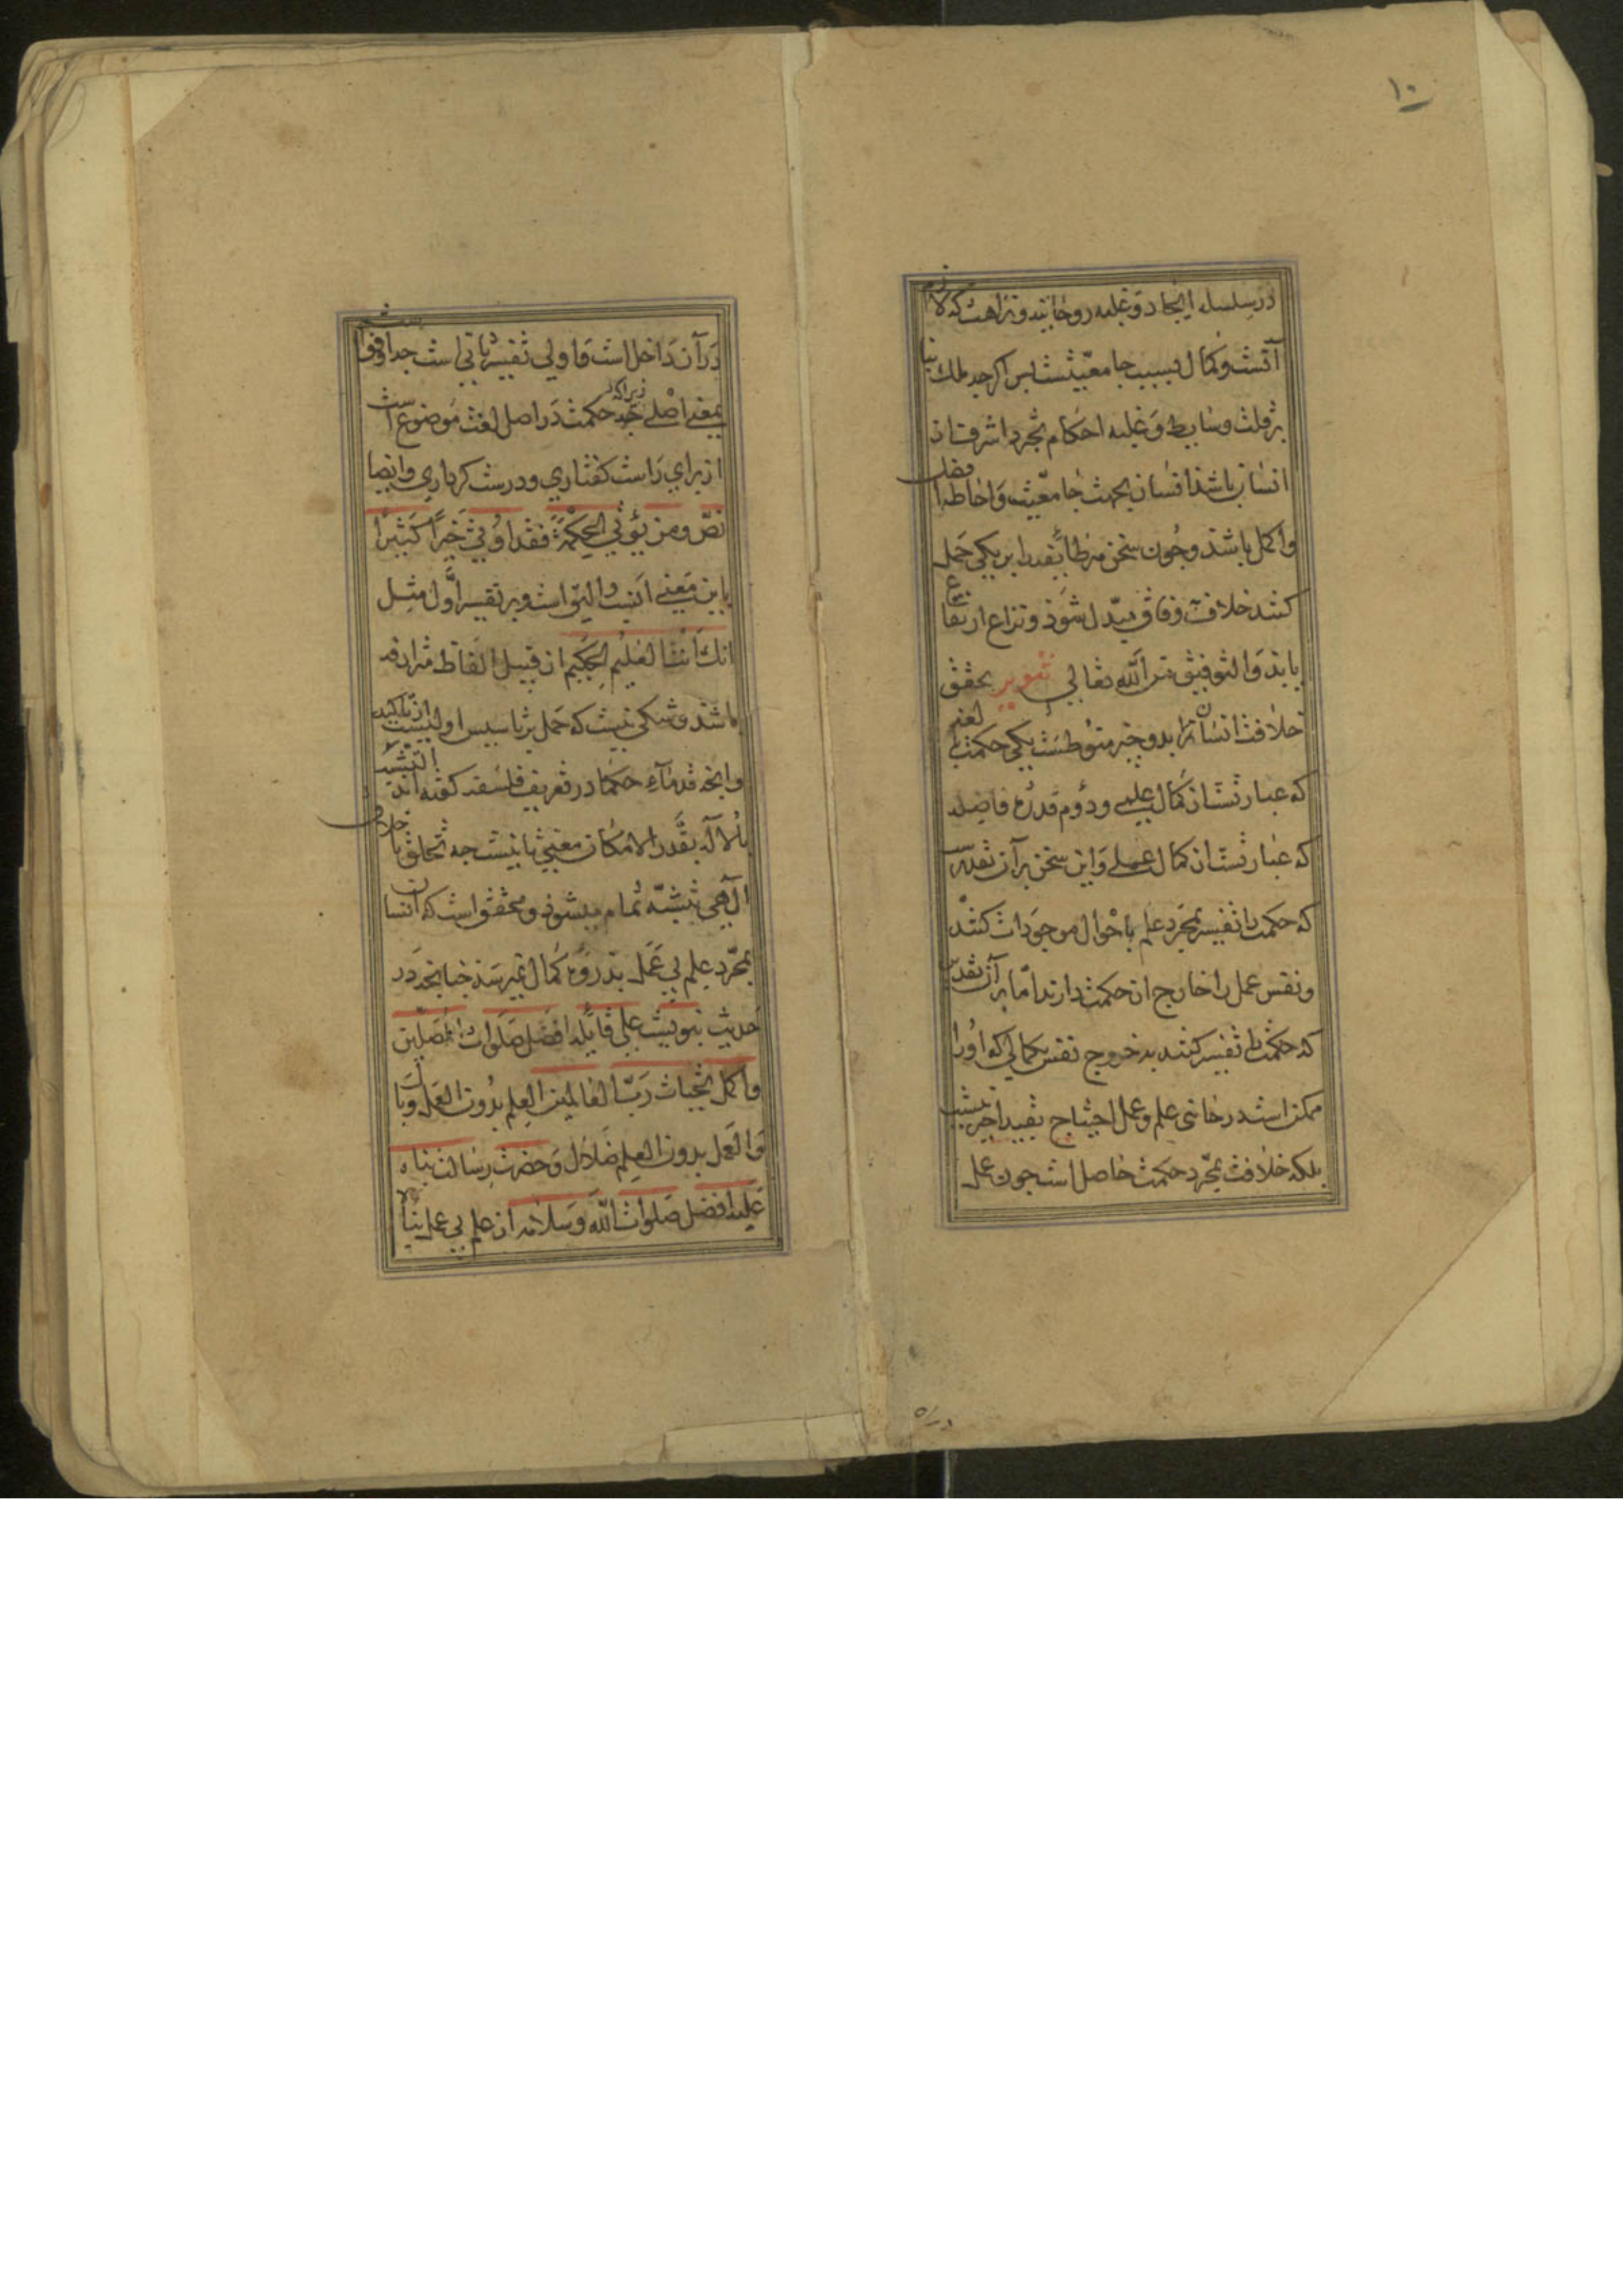 ١٠
در سلسله ایجاد و غلبه روحانیت و نزاهت که لازم
آنست و کمال بسبب جامعیتست پس اگرچه ملک بنا
بر قلت وسایط و غلبه احکام تجرد اشرف از
انسان باشد انسان بجهت جامعیت و احاطه افضل
و اکمل باشد و چون سخن هر طایفه را بر یکی حمل
کنند خلاف بوفاق مبدل شود و نزاع ارتفاع
یابد و التوفیق من الله تعالی تنویر تحقق
خلافت انسانرا بدو چیز منوطست یکی حکمت بالغه
که عبارتست از کمال علمی و دوم قدرت فاضله
که عبارتست از کمال عملی و این سخن بر آن تقدیرست
که حکمت را تفسیر بمجرد علم باحوال موجودات کنند
و نفس عمل را خارج از حکمت دارند اما بر آن تقدیر
که حکمت را تفسیر کنند به خروج نفس بکمالی که او را
ممکن است در جانبی علم و عمل احتیاج بقید اخیر نیست
بلکه خلافت بمجرد حکمت حاصل است چون عمل
در آن داخل است و اولی تفسیر ثانی است چه اوفق است
بمعنی اصلی زیرا که حکمت در اصل لغت موضوع است
از برای راست گفتاری و درست کرداری و ایضا
نص ومن یؤتی الحکمة فقد اوتی خیراً کثیراً
باین معنی انسب و الیق است و بر تفسیر اول مثل
انک انت العلیم الحکیم از قبیل الفاظ مترادفه
باشد و شکی نیست که حمل بر تاسیس اولیست از تاکید
و آنچه قدماء حکما در تعریف فلسفه گفته اند التشبه
بالاله بقدر الامکان معنی ثانیست چه تخلق باخلاق
الهی تشبه تمام میشود و محقق است که انسان
بمجرد علم بی عمل بذروه کمال نمیرسد چنانچه در
حدیث نبویست علی قایله افضل صلوات المصلین
و اکمل تحیات رب العالمین العلم بدون العمل وبال
والعمل بدون العلم ضلال و حضرت رسالت پناه
علیه افضل صلوات الله و سلامه از علم بی عمل پناه